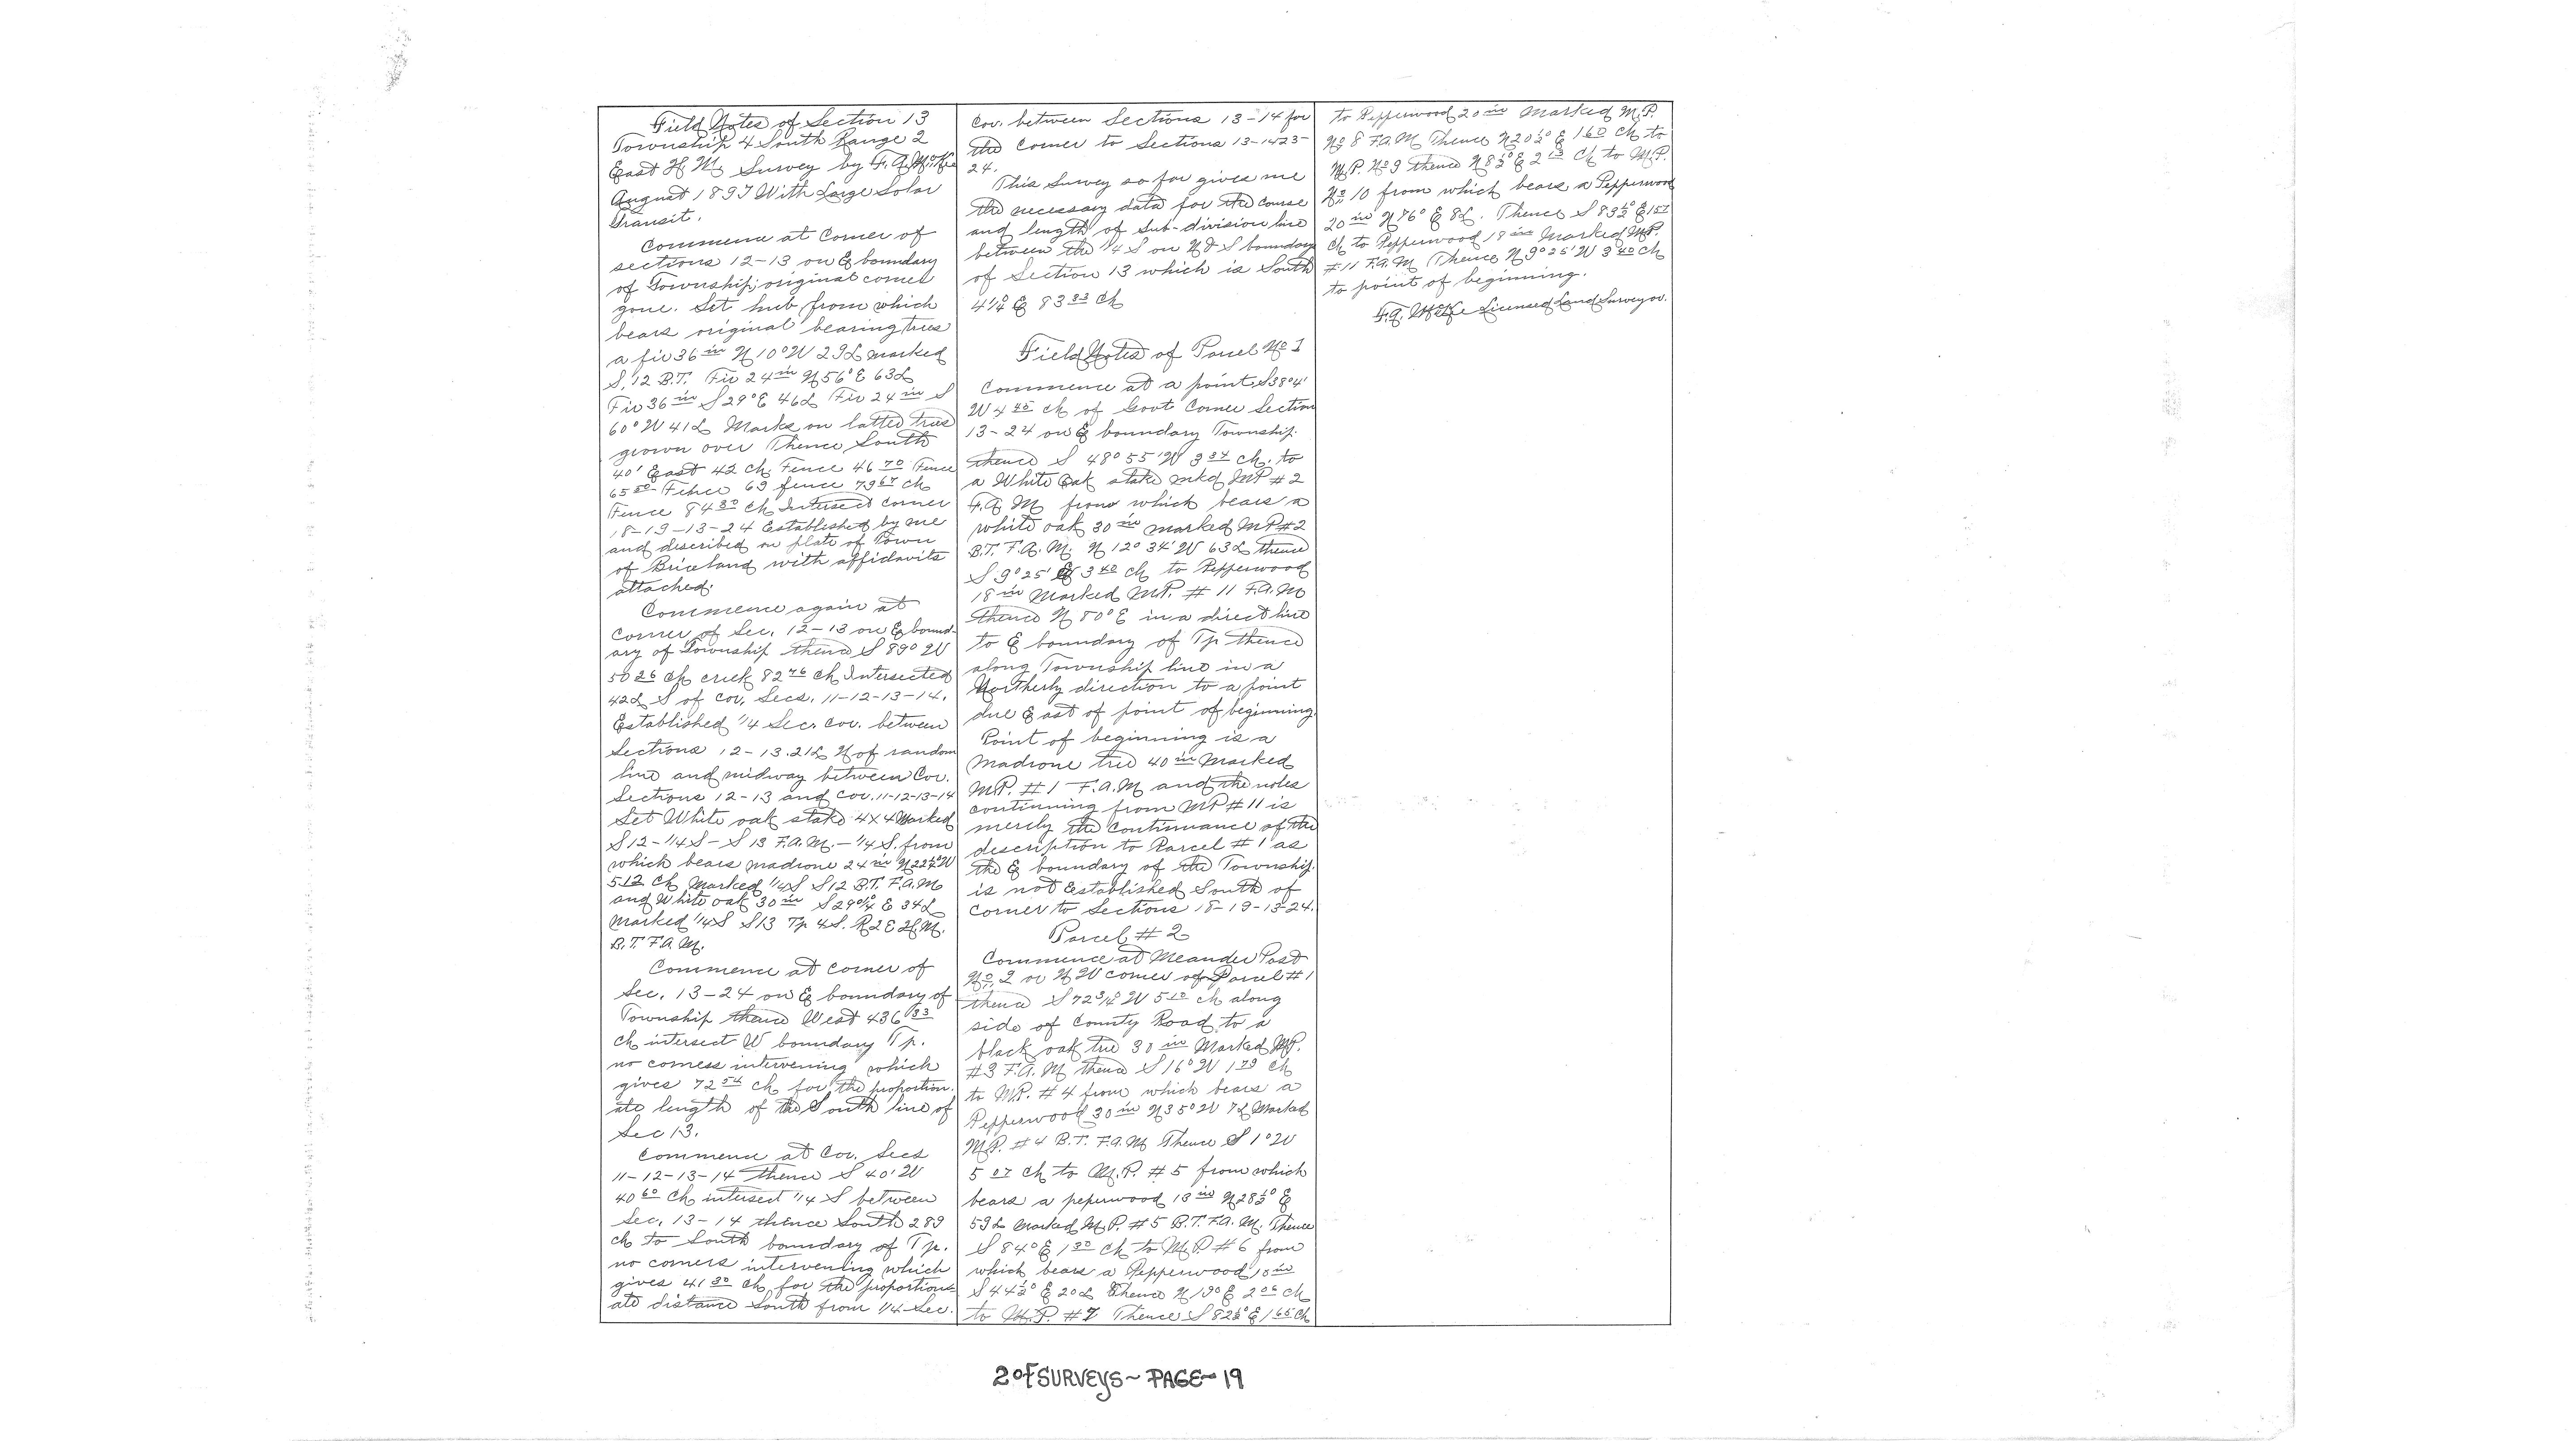 Field Notes of Section 13
Township 4 South Range 2
East H M, Survey by F. A.
August 1897 With Large Solar
Transit.
Commence at Corner of
sections 12-13 on E boundary
of Township; original corner
gone. Set hub from which
bears original bearing trees
a fir 36 in N 10° W 29L marked
S. 12 B.T. Fir 24 in N 56° E 63L
Fir 36 in S 29° E 46L Fir 24 in S
60° W 41L Marks on latted trees
grown over Thence South
40' East 42 ch Fence 46 70 Fence
65 50 69 fence 79 67 ch
Fence 84 30 ch Intersect corner
18-19-13-24 Established by me
and described on plate of Town
of Briceland with affidavits
attached.
Commence again at
corner of Sec. 12-13 on E bound-
ary of Township thence S 89° W
50 26 ch crick 82 76 ch Intersected
42L S of Cor. Secs. 11-12-13-14.
Established 1/4 Sec. Cor. between
Sections 12-13. 21L N of random
line and midway between Cor.
Sections 12-13 and Cor. 11-12-13-14
Set White oak stake 4x4 Marked
S12-1/4S-S 13 F.A.M.-1/4S. from
which bears madrone 24 in N 22½° W
5 12 ch Marked 1/4S S12 B.T. F.A.M
and White oak 30 in S 29 E 34L
Marked 1/4S S13 Tp 4S. R2E H.M.
B.T. F.A.M.
Commence at corner of
Sec. 13-24 on E boundary of
Township thence West 436 33
ch intersect W boundary Tp.
no corners intervening which
gives 72 54 ch for the proportion-
ate length of the South line of
Sec 13.
Commence at Cor. Secs
11-12-13-14 thence S 40' W
40 60 ch intersect 1/4 S between
Sec. 13-14 thence South 289
ch to South boundary of Tp.
no corners intervening which
gives 41 30 ch for the proportion-
ate distance South from 1/4 Sec.
Cor. between Sections 13-14 for
the corner to Sections 13-1423-
24.
This Survey so far gives me
the necessary data for the course
and length of Sub-division line
between the 1/4 S on N & S boundary
of Section 13 which is South
4½° E 83 33 ch
Field Notes of Parcel No 1
Commence at a point S38°4'
W 4 45 ch of Govt Corner Section
13-24 on E boundary Township
thence S 48° 55' W 3 34 ch. to
a White Oak stake mkd MP #2
F.A M from which bears a
white oak 30 in marked MP #2
B.T. F.A.M. N 12° 34' W 63L thence
S 9° 25' E 3 40 ch to Pepperwood
18 in Marked M.P. # 11 F.A.M
thence N 80° E in a direct line
to E boundary of Tp thence
along Township line in a
Northerly direction to a point
due East of point of beginning.
Point of beginning is a
Madrone tree 40 in Marked
M.P. #1 F.A.M and the notes
continuing from MP # 11 is
merely the continuance of the
description to Parcel # 1 as
the E boundary of the Township
is not Established South of
corner to Sections 18-19-13-24.
Parcel # 2
Commence at Meander Post
No. 2 or N W corner of Parcel # 1
thence S 72¾° W 5 12 ch along
side of County Road to a
black oak tree 30 in Marked M.P.
#3 F.A.M thence S 16° W 1 79 ch
to M.P. # 4 from which bears a
Pepperwood 30 in N 35° W 7L Marked
M.P. # 4 B.T. F.A.M Thence S 1° W
5 07 ch to M.P. # 5 from which
bears a peperwood 18 in N 28½° E
59L Marked M.P. # 5 B.T. F.A.M. Thence
S 84° E 1 30 ch to M.P. # 6 from
which bears a Pepperwood 18 in
S 44½° E 20L Thence N 19° E 2 06 ch
to M.P. # 7 Thence S 82½° E 1 65 ch
to Pepperwood 20 in Marked M.P.
No 8 F.A.M Thence N 20½° E 1 60 ch to
M.P. No 9 thence N 85° E 2 13 ch to M.P.
No 10 from which bears a Pepperwood
20 in N 76° E 8L. Thence S 89½° E 1 57
ch to Pepperwood 18 in Marked M.P.
# 11 F.A.M Thence N 9° 25' W 3 40 ch
to point of beginning.
F.A. Licensed Land Surveyor.
2 of SURVEYS~ PAGE~ 19